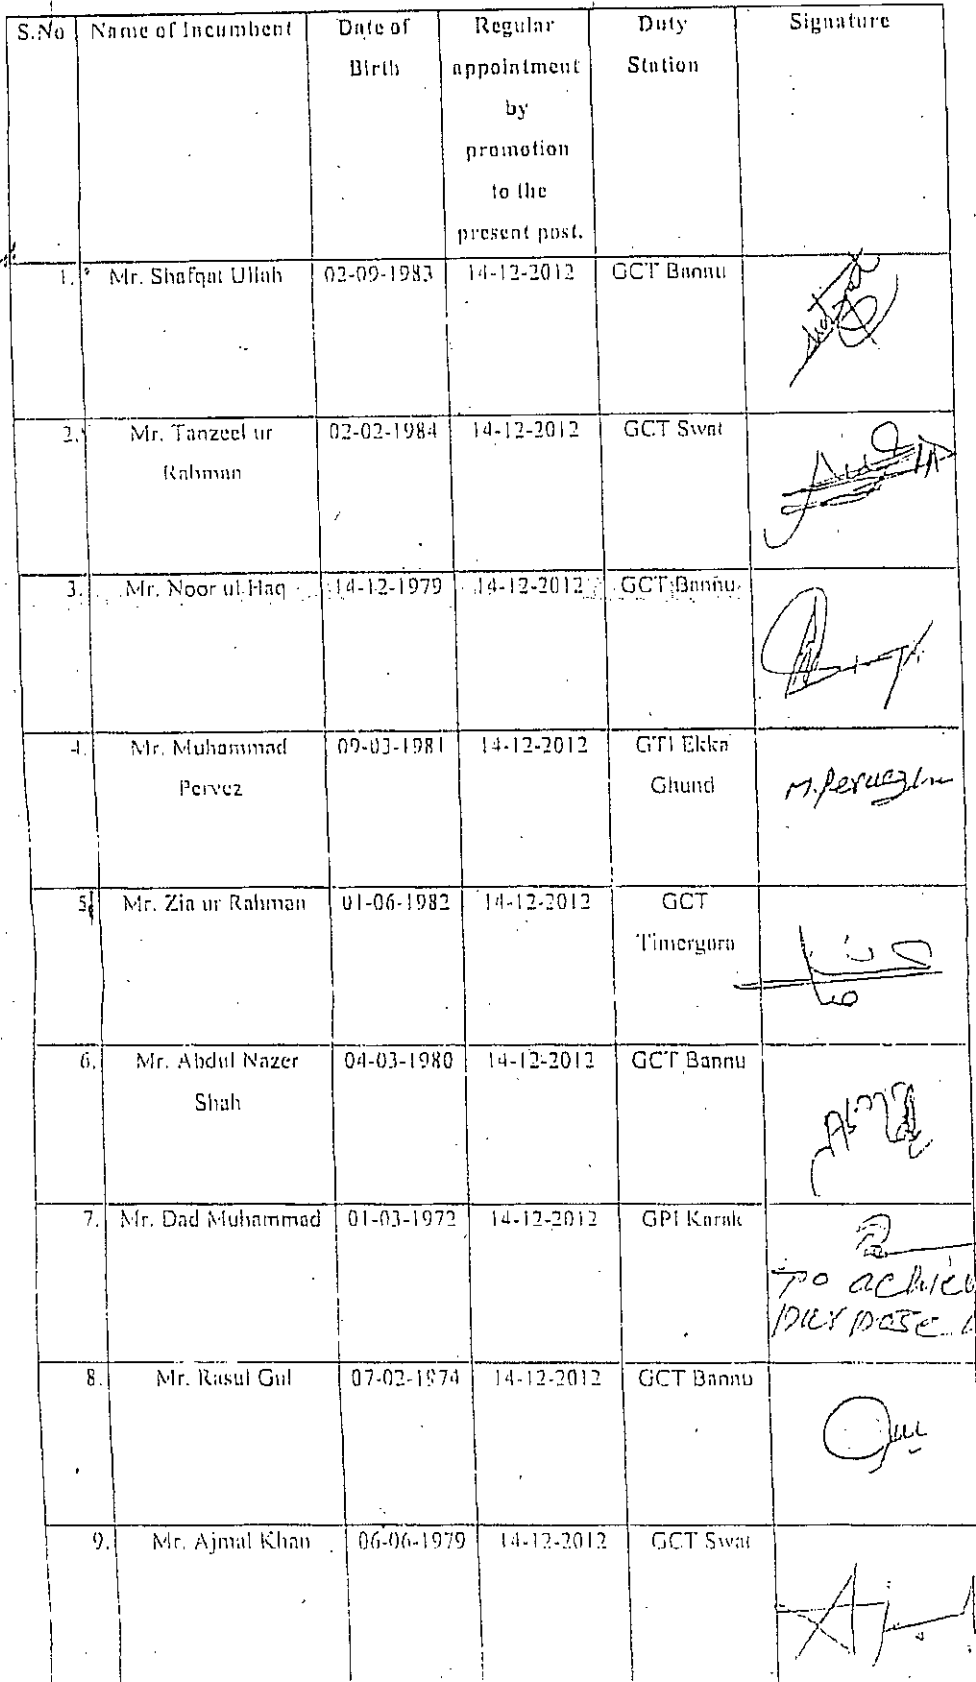 S.No Name of Incumbent Date of Birth Regular appointment by promotion to the present post. Duty Station Signature
1. Mr. Shafqat Ullah 02-09-1983 14-12-2012 GCT Bannu
2. Mr. Tanzeel ur Rahman 02-02-1984 14-12-2012 GCT Swat
3. Mr. Noor ul Haq 14-12-1979 14-12-2012 GCT Bannu
4. Mr. Muhammad Pervez 09-03-1981 14-12-2012 GTI Ekka Ghund M. Pervez
5. Mr. Zia ur Rahman 01-06-1982 14-12-2012 GCT Timergara
6. Mr. Abdul Nazer Shah 04-03-1980 14-12-2012 GCT Bannu
7. Mr. Dad Muhammad 01-03-1972 14-12-2012 GPI Karak
To achiev
purpose
8. Mr. Rasul Gul 07-02-1974 14-12-2012 GCT Bannu
9. Mr. Ajmal Khan 06-06-1979 14-12-2012 GCT Swat